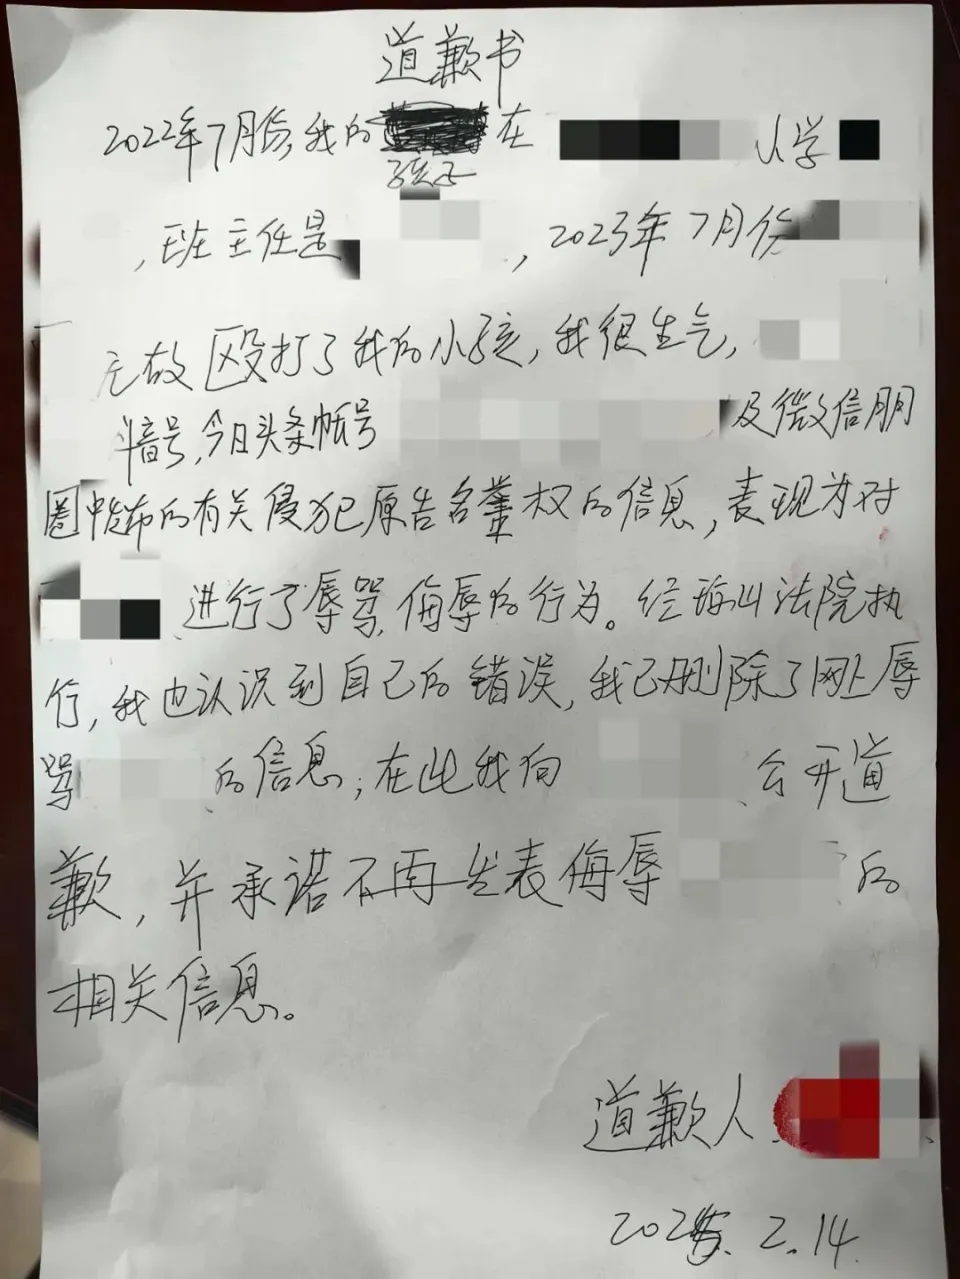 道歉书
2022年7月份,我的 在 小学
孩子
,班主任是 ,2023年7月份
无故殴打了我的小孩,我很生气,
抖音号,今日头条帐号 及微信朋
圈中发布的有关侵犯原告名誉权的信息,表现为对
进行了辱骂,侮辱的行为。经 法院执
行,我也认识到自己的错误,我已删除了网上辱
骂 的信息;在此我向 公开道
歉,并承诺不再发表侮辱 的
相关信息。
道歉人
2025.2.14